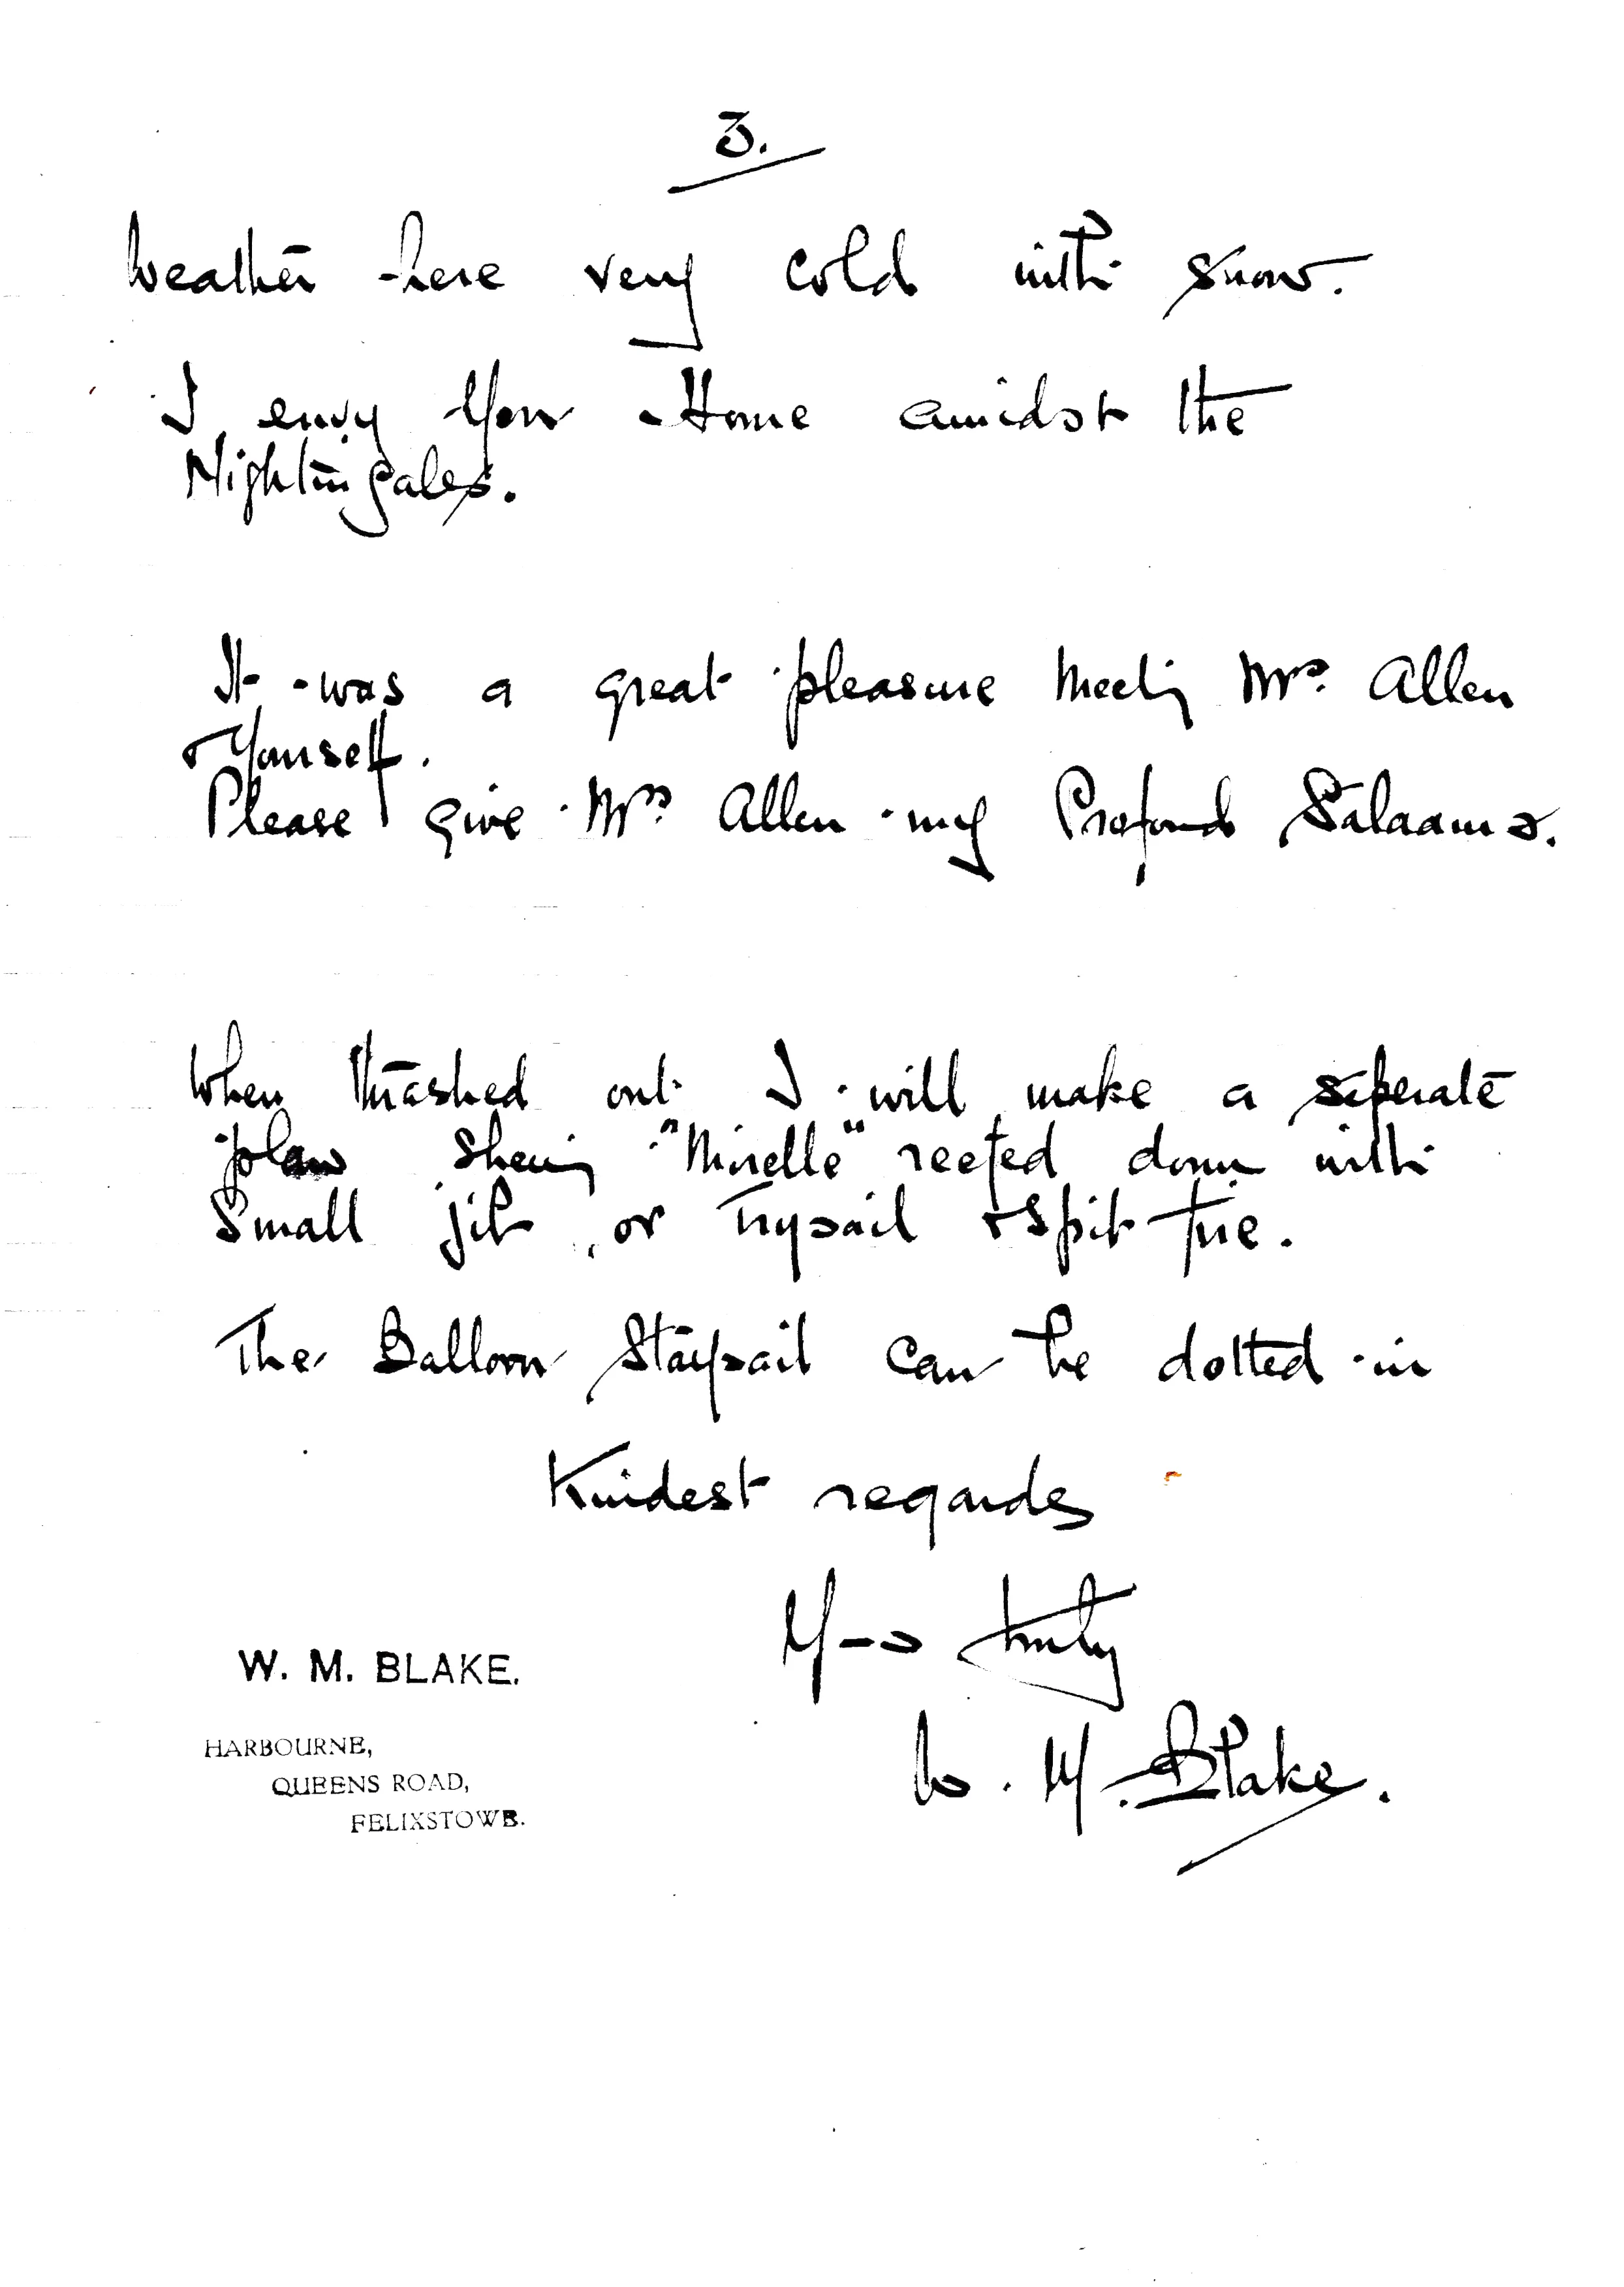 3.
Weather here very cold with snow.
I envy your Home amidst the
Nightingales.
It was a great pleasure meeting Mrs. Allen
& Yourself.
Please give Mrs. Allen my Profound Salaams.
When thrashed out I will make a seperate
plan shewing "Mirelle" reefed down with
Small jib, or Trysail & Spit fire.
The Balloon Staysail can be dotted in
Kindest regards
Y--s truly
W. M. Blake.
W. M. BLAKE.
HARBOURNE,
QUEENS ROAD,
FELIXSTOWE.